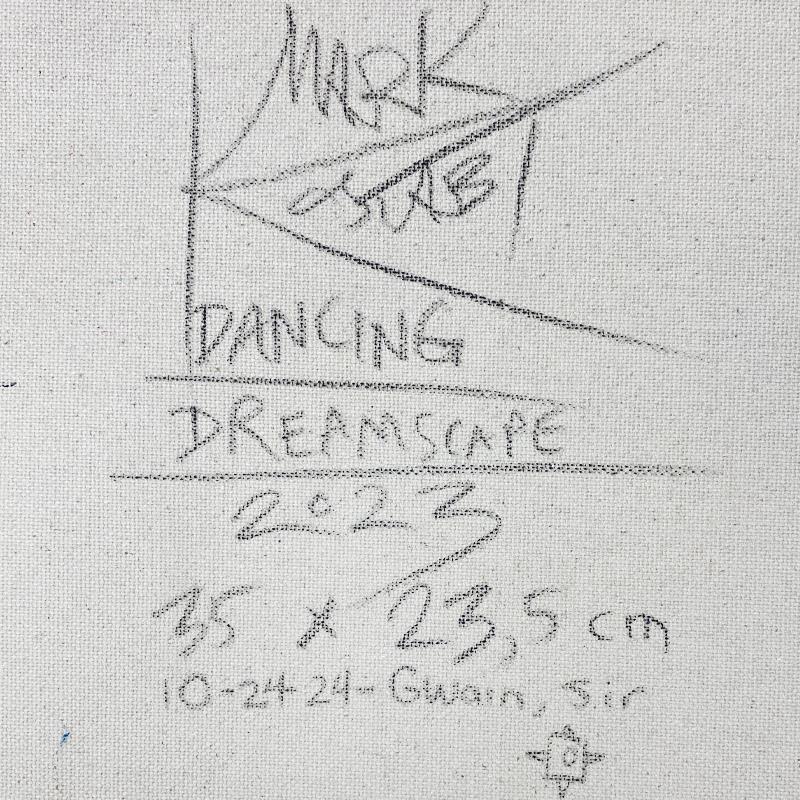 MARK
DANCING
DREAMSCAPE
2023
35 x 23,5 cm
10-24-24- Gwain, Sir